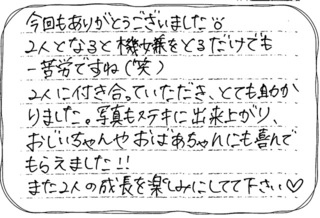 今回もありがとうございました☺
2人となると機嫌をとるだけでも
一苦労ですね(笑)
2人に付き合っていただき、とても助か
りました。写真もステキに出来上がり、
おじいちゃんやおばあちゃんにも喜んで
もらえました!!
また2人の成長を楽しみにしてて下さい♡